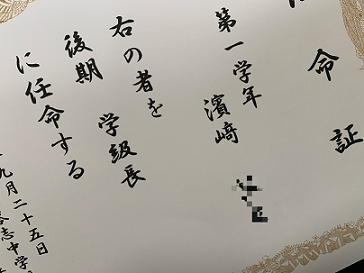 命証
第一学年
濱﨑
右の者を
後期 学級長
に任命する
九月二十五日
志中学